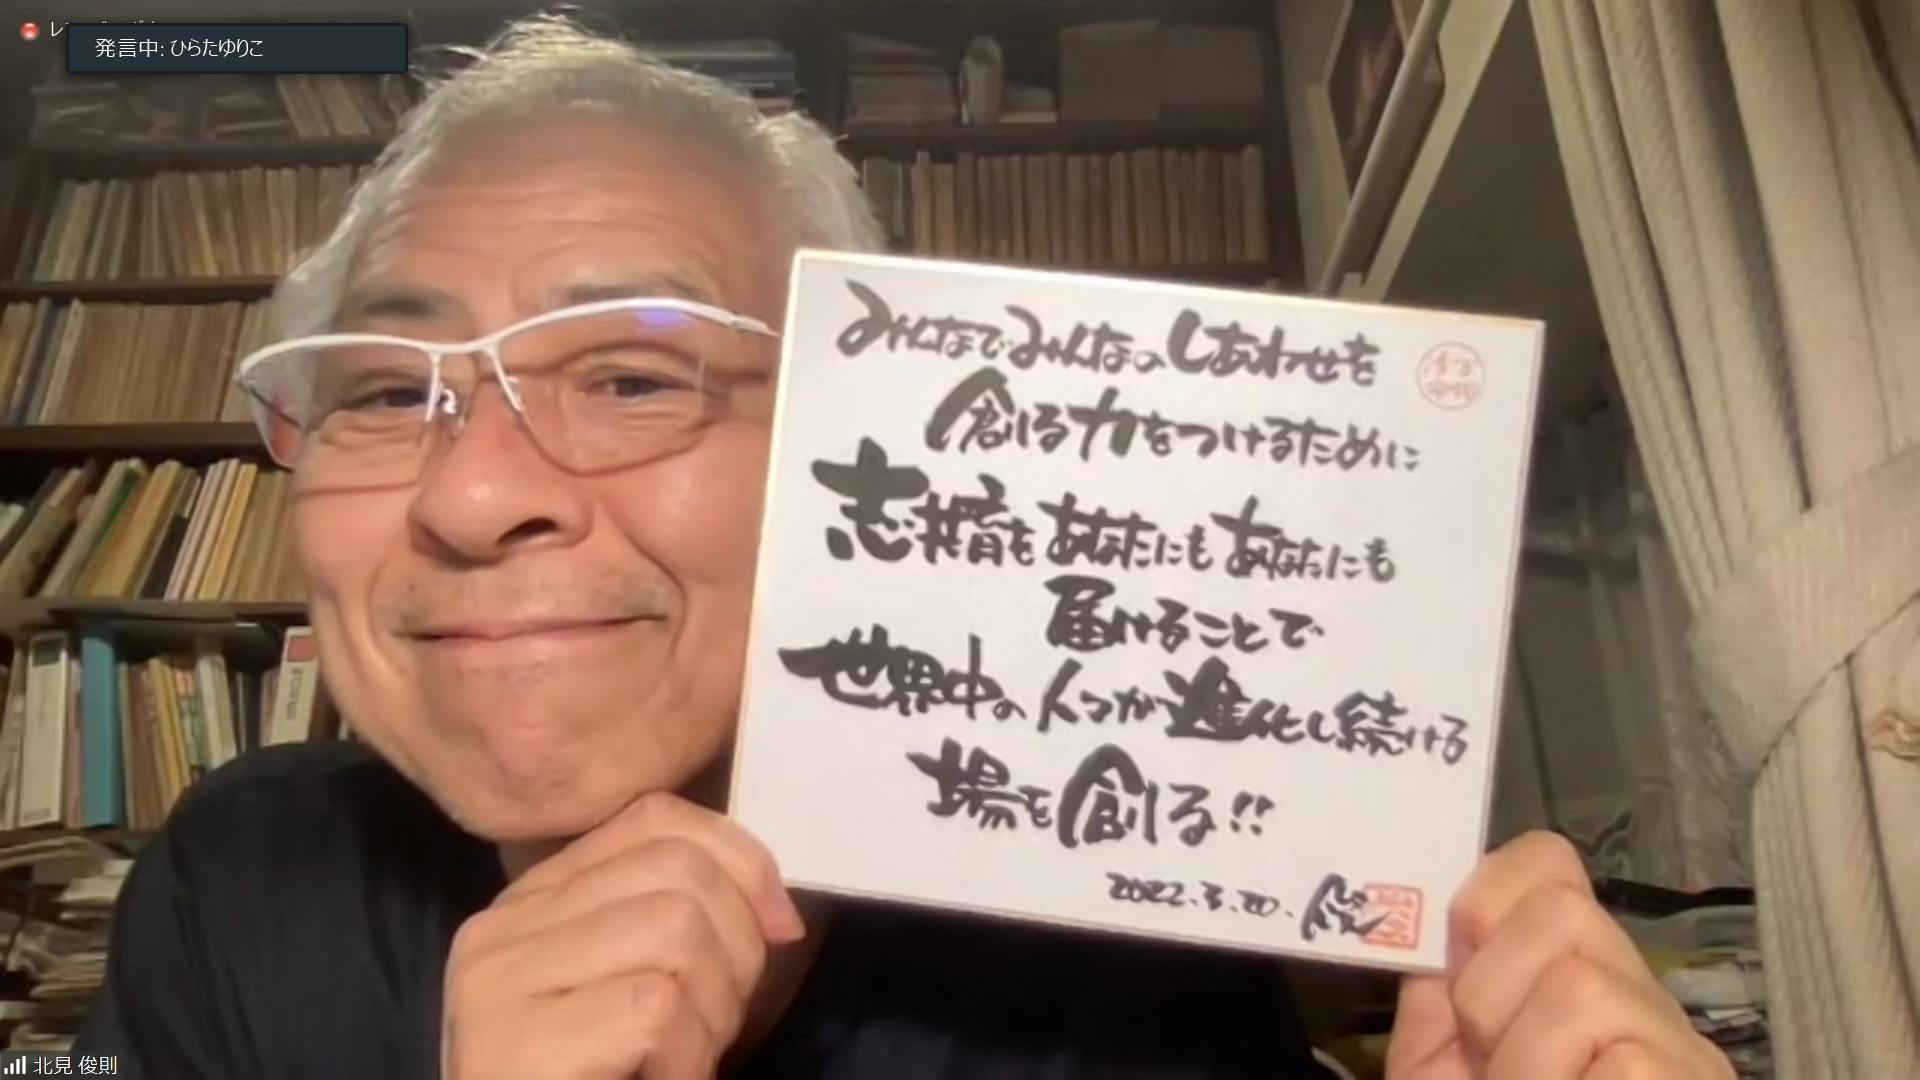 発言中: ひらたゆりこ
みんなでみんなのしあわせを
創る力をつけるために
志共育をあなたにもあなたにも
届けることで
世界中の人つが進化し続ける
場を創る!!
2022.3.20. 俊
北見 俊則